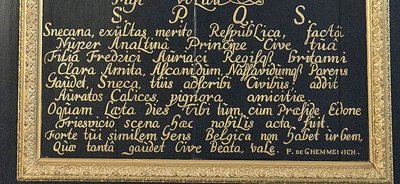 S P Q S
Snecana, exultas merito Respublica, facta
Nuper Analtina Principe Cive tua
Filia Fredrici Auriaci Regisq britanni
Clara Amita, Ascanidum, Nassovidumq Parens
Gaudet, Sneca, tuis adscribi Civibus; addit
Auratos Calices, pignora amicitiæ
Oquam Læta dies tibi tum cum Præside Edone
Friesvicio scena hæc nobilis acta fuit
Forte tui similem Gens Belgica non habet urbem,
Quæ tanta gaudet Cive Beata, vale. P. DE GHEMMENICH.